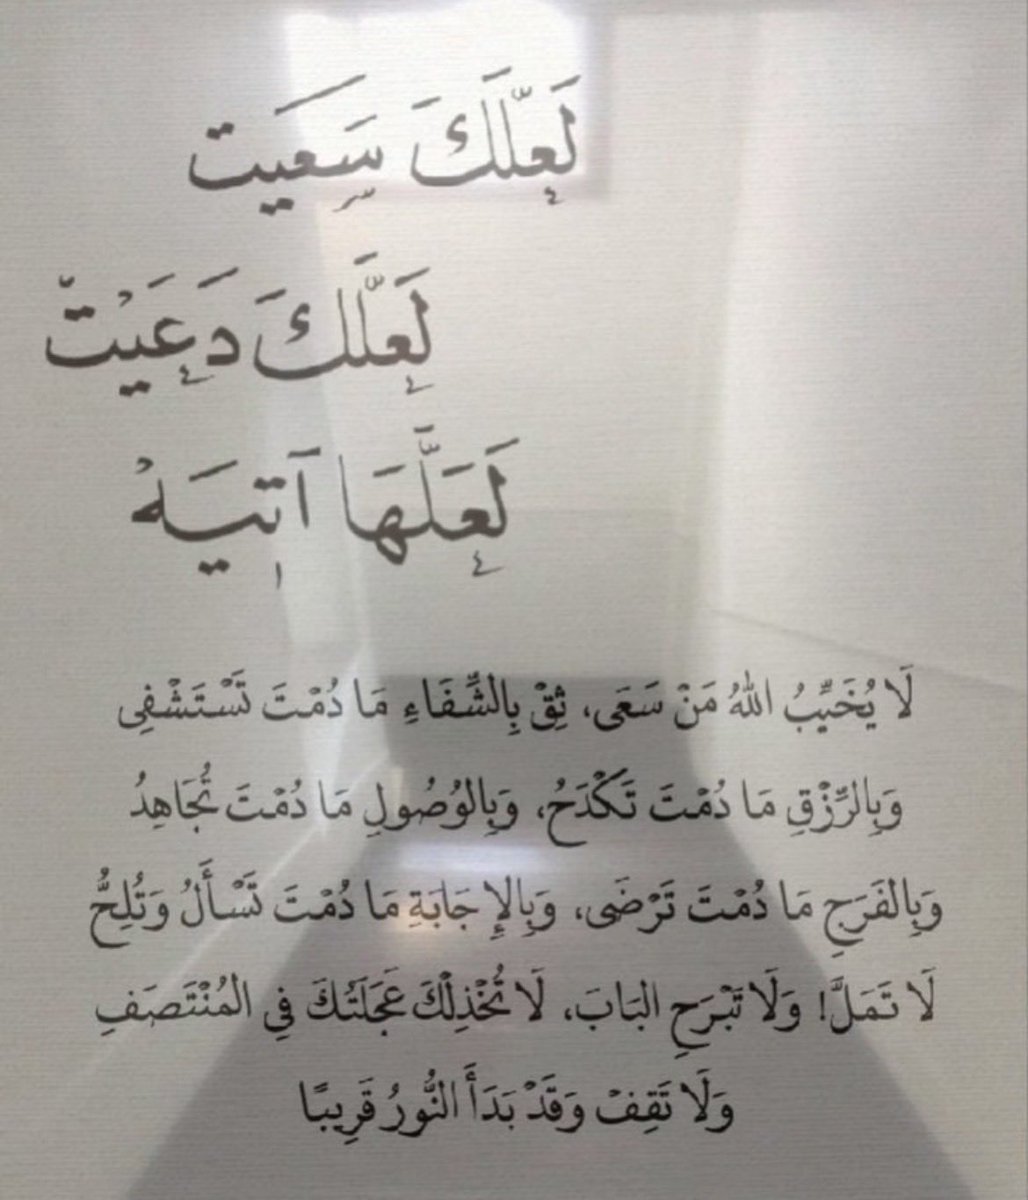 لَعَلَّكَ سَعَيت
لَعَلَّكَ دَعَيْتْ
لَعَلَّهَا آتِيَهْ
لَا يُخَيِّبُ اللهُ مَنْ سَعَى، ثِقْ بِالشِّفَاءِ مَا دُمْتَ تَسْتَشْفِى
وَبِالرِّزْقِ مَا دُمْتَ تَكْدَحُ، وَبِالوُصُولِ مَا دُمْتَ تُجَاهِدُ
وَبِالفَرَجِ مَا دُمْتَ تَرْضَى، وَبِالإِجَابَةِ مَا دُمْتَ تَسْأَلُ وَتُلِحُّ
لَا تَمَلَّ! وَلَا تَبْرَحِ البَابَ، لَا تُخْذِلْكَ عَجَلَتُكَ فِي المُنْتَصَفِ
وَلَا تَقِفْ وَقَدْ بَدَأَ النُّورُ قَرِيبًا